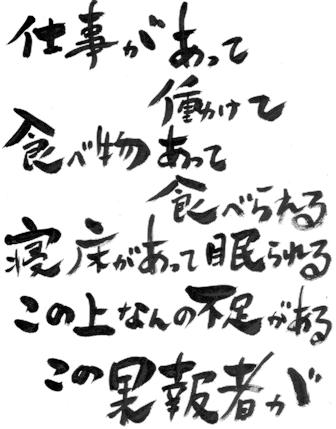 仕事があって
働けて
食べ物あって
食べられる
寝床があって眠られる
この上なんの不足がある
この果報者が